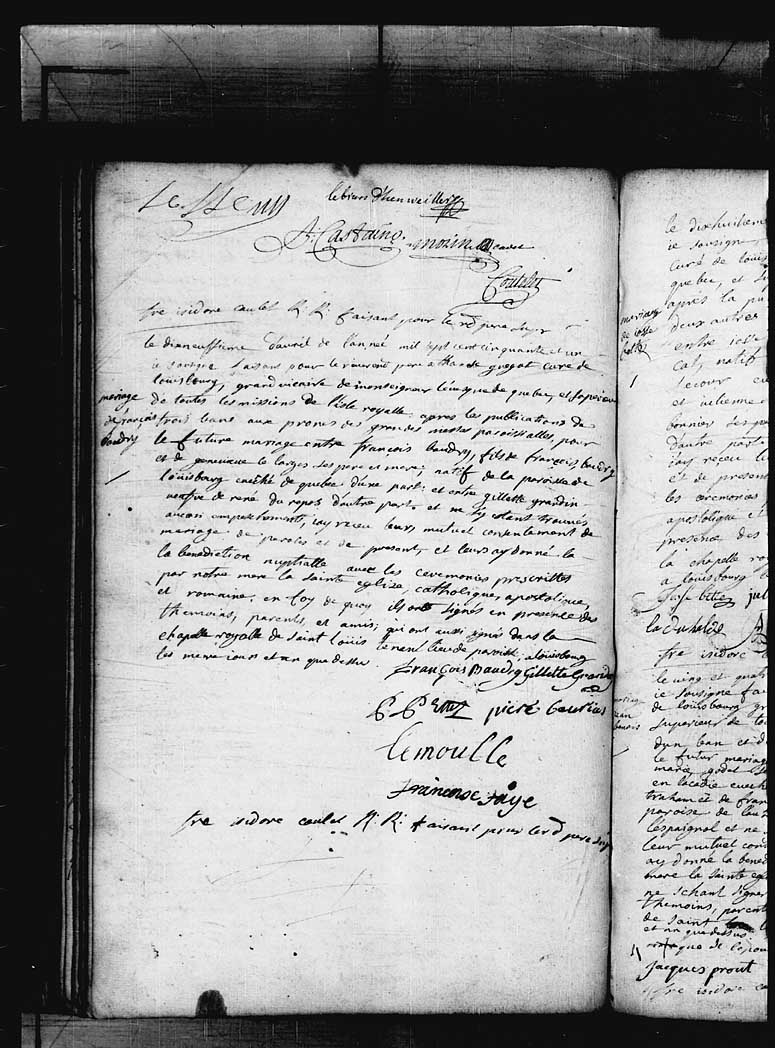 lebrun d'henweiller
A: Castaing morin
Coutelet
fre isidore caulet R. R. faisant pour le rd pere supr
le dixneuffieme d'avril de l'année mil sept cent cinquante et un
ie sousigné faisant pour le reverent pere athanase guegot curé de
louisbourg, grand vicaire de monseigneur l'evesque de quebec, et superieur
de toutes les missions de l'isle royalle apres les publications de
trois bans aux prones des grandes messes paroissialles, pour
le future mariage entre françois baudry, fils de françois baudry
et de genevieve le large ses pere et mere; natif de la paroisse de
louisbourg eveché de quebec d'une part: et entre gillette grandin
veufve de rené du repos d'autre part: et ne s'y estant trouvés
aucun empeschement, iay receu leurs mutuel consentement de
mariage de paroles et de present, et leurs ay donné la
la benediction nuptialle avec les ceremonies prescrittes
par notre mere la sainte eglise, catholique, apostolique,
et romaine, en foy de quoy ils ont signés en presence des
themoins, parents, et amis; qui ont aussi signés dans la
chapelle royalle de saint louis tenent lieu de paroisse a louisbourg
les meme iours et an que dessus
mariage
de françois
baudry
françois Baudry Gillette Grandin
lemoulle
francoise faye
frere isidore caulet R: R: faisant pour le rd pere sup
le dixhuitieme
ie sousigné
curé de louis
quebec, et su
apres la pu
deux autres
entre iosse
cal, natif
et iulienne
d'autre part
iay receu l
et de present
les ceremonies
apostolique et
presence des
la chapelle roy
a louisbourg
mariage
de iosse
frre isidore
le vingt et quat
ie sousigne fai
de louisbourg gr
superieur de to
d'un ban et d
le futur mariag
marie godet
en lacadie evech
et de fran
paroisse de
l'espaignol et ne
leur mutuel con
ay donné la bened
mere la sainte eg
ne schant signer
themoins, parent
de saint
et an que dessus
marque de
jacques prout
frre isidore ca